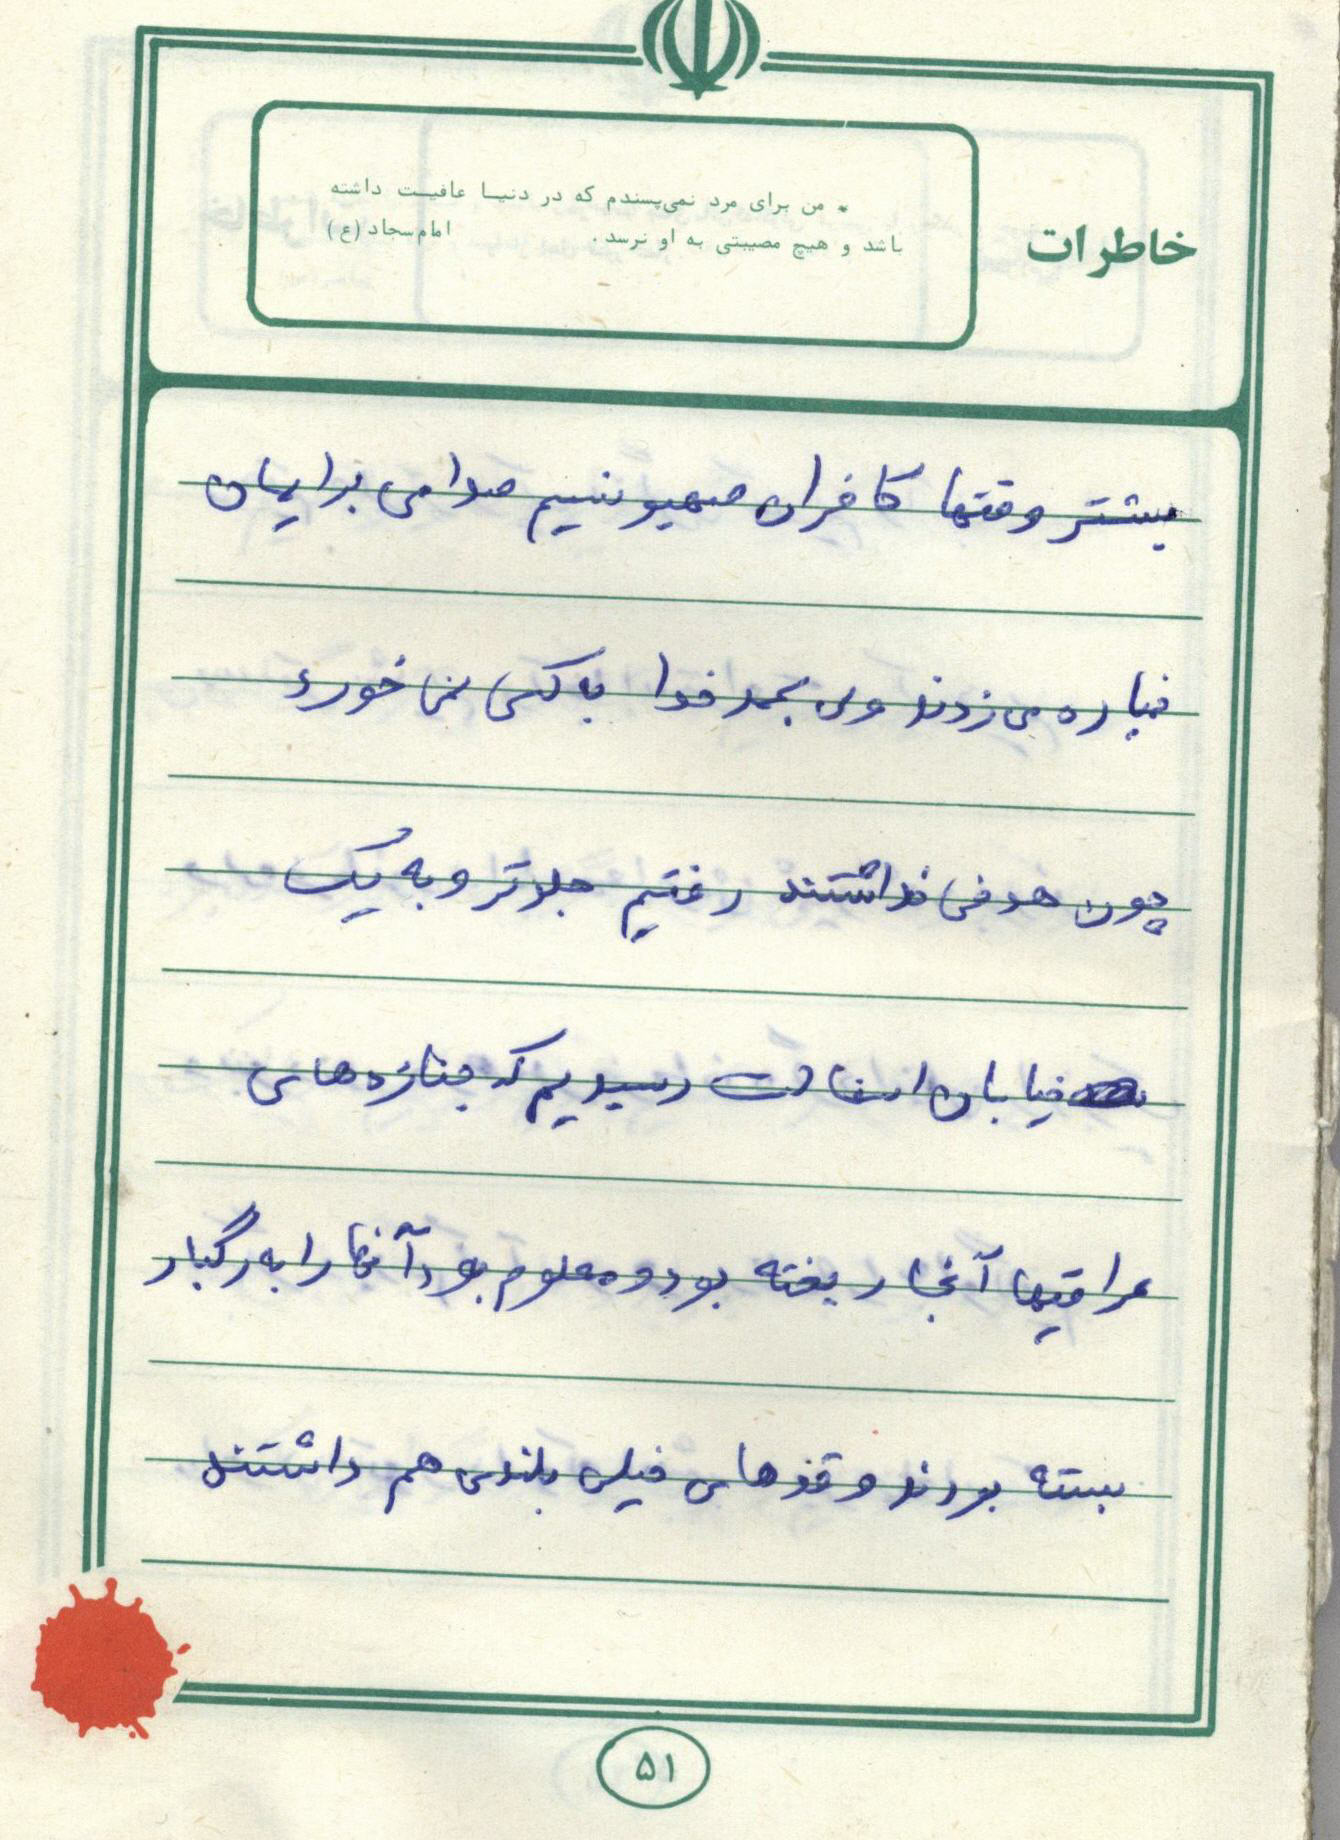 خاطرات
* من برای مرد نمی‌پسندم که در دنیا عافیت داشته
باشد و هیچ مصیبتی به او نرسد. امام سجاد (ع)
بیشتر وقتها کافران صهیونیسیم صدامی برایمان
خمپاره می زدند ولی بحمد خدا به کسی نمی خورد
چون هدفی نداشتند رفتیم جلوتر و به یک
خیابان اسفالت رسیدیم که جنازه های
عراقیها آنجا ریخته بود و معلوم بود آنها را به رگبار
بسته بودند و قدهای خیلی بلندی هم داشتند
۵۱